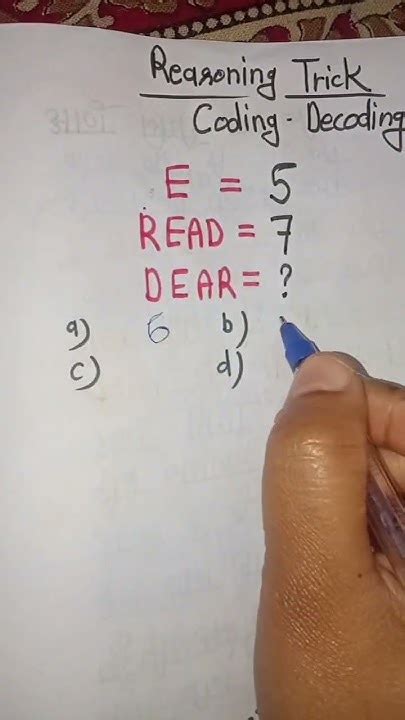 Reasoning Trick
Coding - Decoding
E = 5
READ = 7
DEAR = ?
a) 6 b)
c) d)